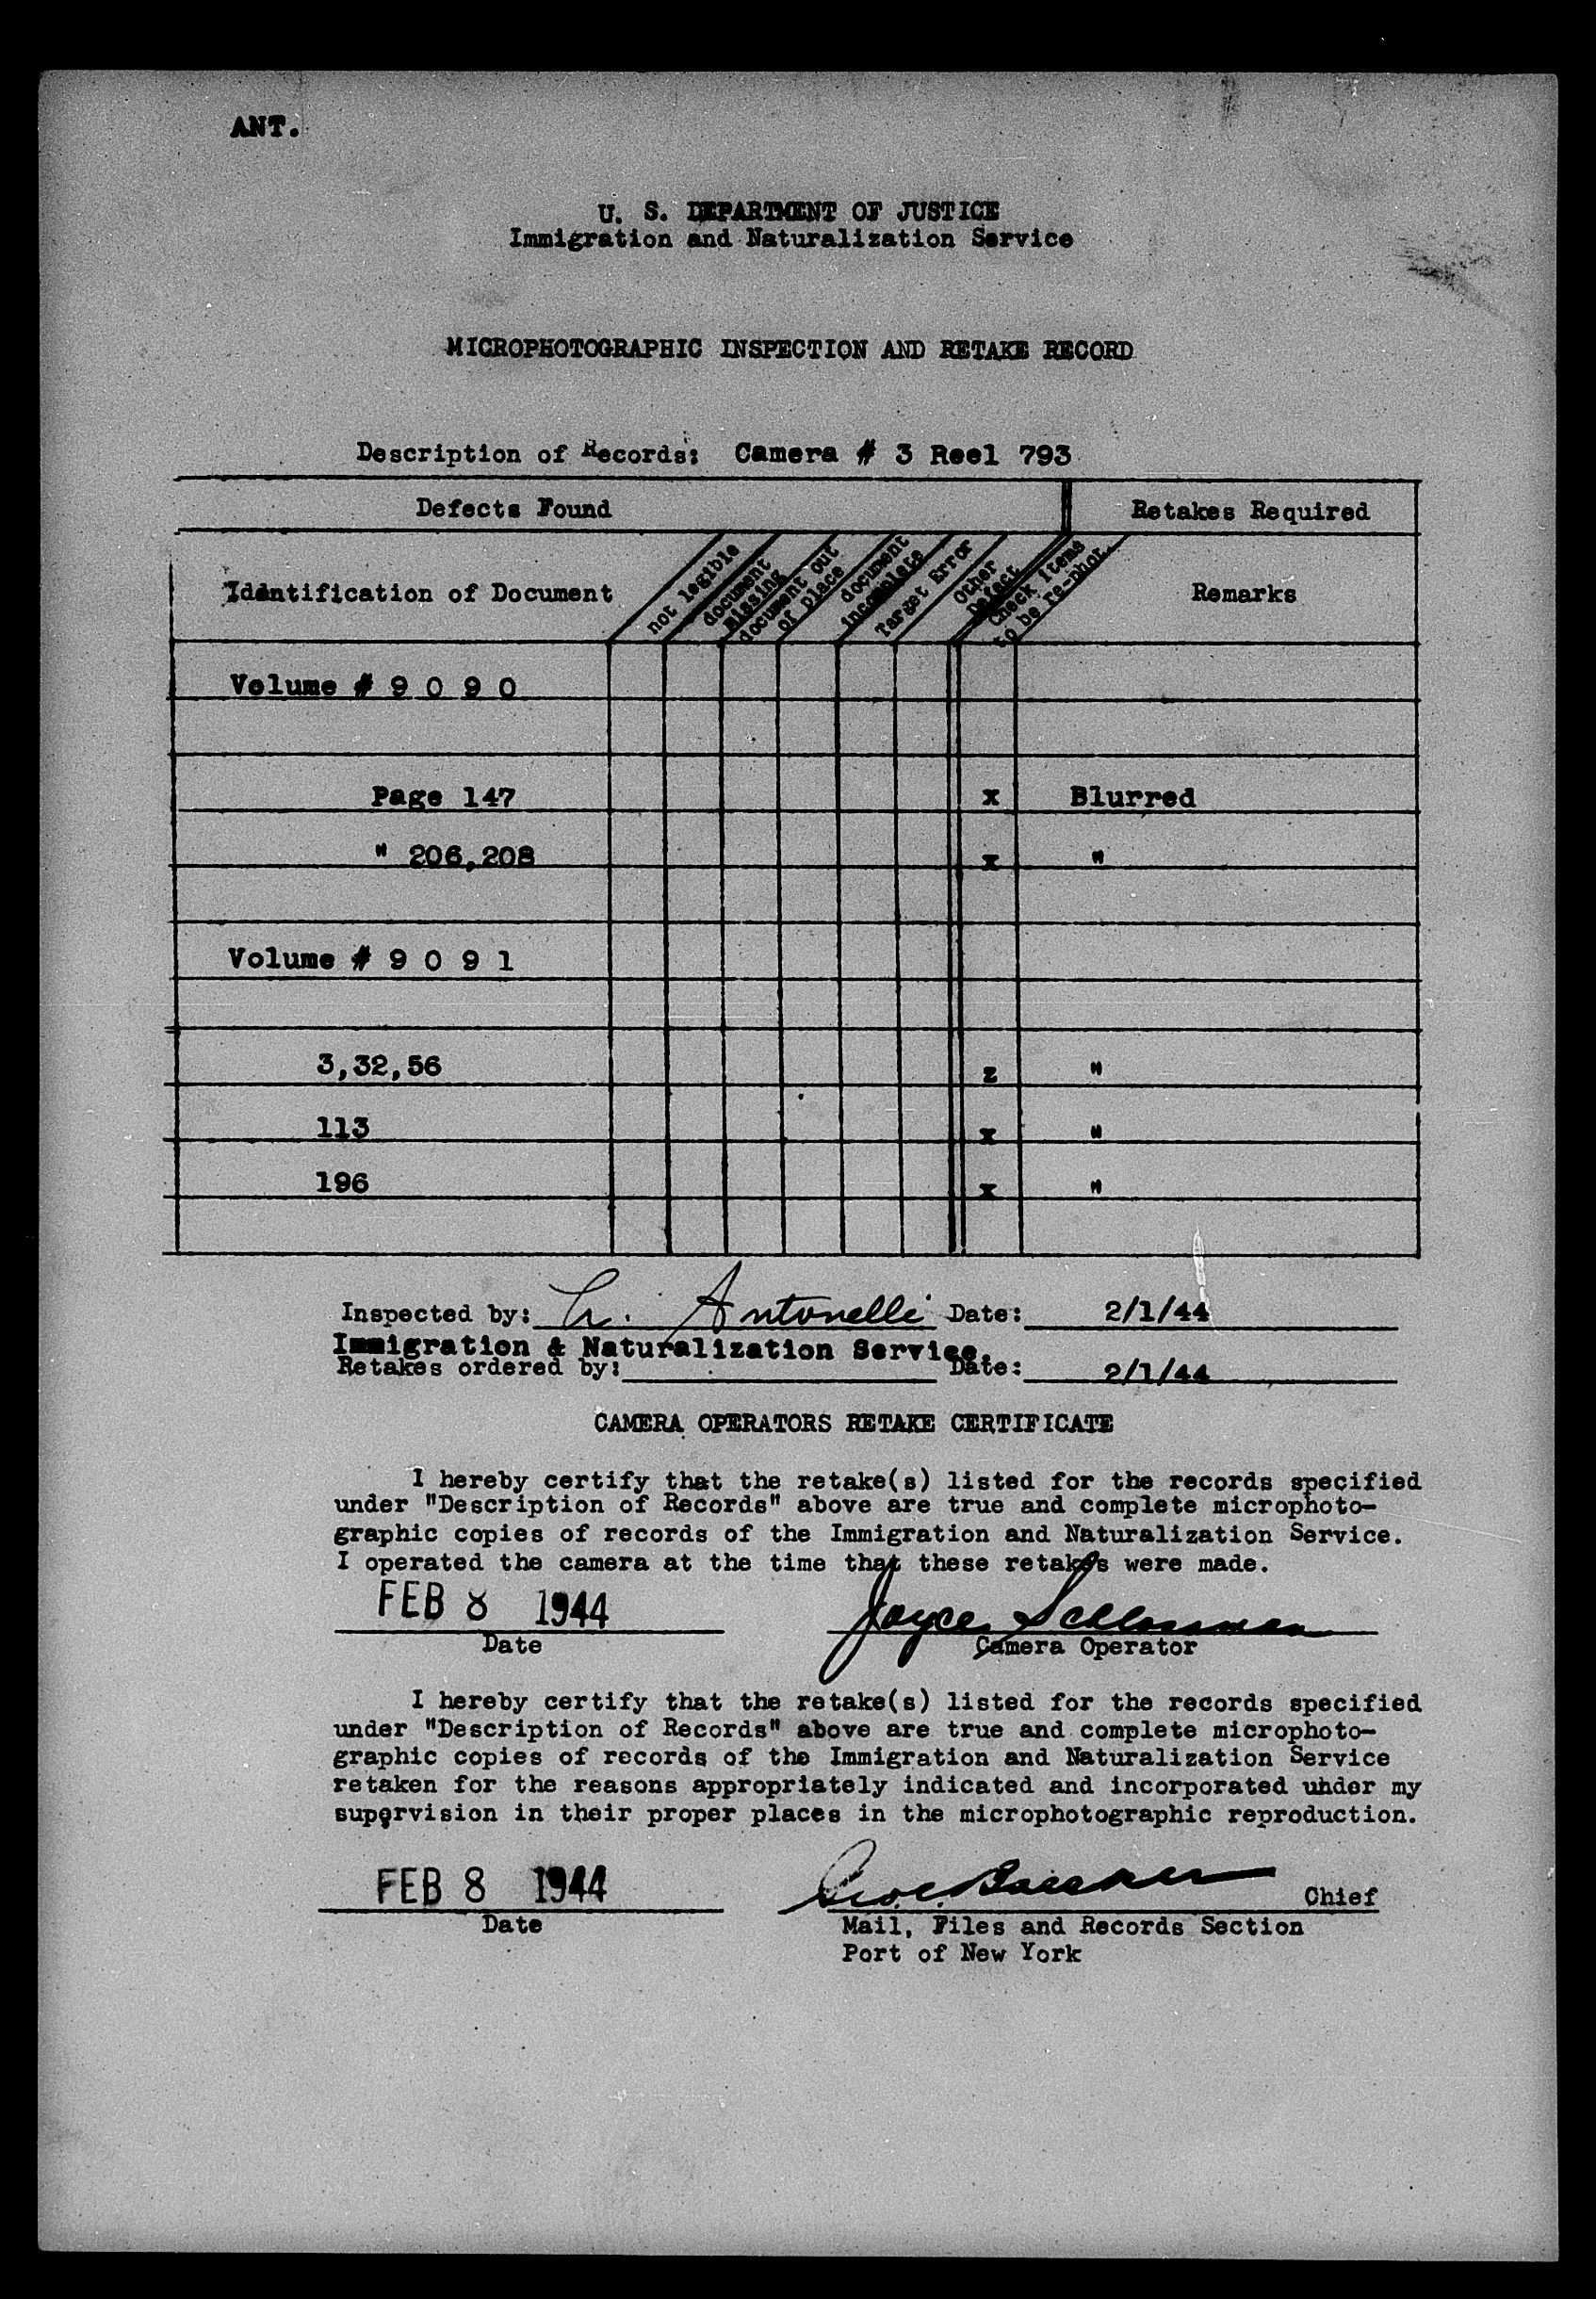 ANT.
U. S. DEPARTMENT OF JUSTICE
Immigration and Naturalization Service
MICROPHOTOGRAPHIC INSPECTION AND RETAKE RECORD
Description of Records: Camera # 3 Reel 793
Defects Found Retakes Required
Identification of Document
not legible
document
Missing
document out
of place
document
incomplete
Target Error
Other
Defect
Check items
to be re-phot.
Remarks
Volume # 9 0 9 0
Page 147 x Blurred
" 206,208 x "
Volume # 9 0 9 1
3,32,56 z "
113 x "
196 x "
Inspected by: Antonelli Date: 2/1/44
Immigration & Naturalization Service.
Retakes ordered by: Date: 2/1/44
CAMERA OPERATORS RETAKE CERTIFICATE
I hereby certify that the retake(s) listed for the records specified
under "Description of Records" above are true and complete microphoto-
graphic copies of records of the Immigration and Naturalization Service.
I operated the camera at the time that these retakes were made.
FEB 8 1944 Joyce
Date Camera Operator
I hereby certify that the retake(s) listed for the records specified
under "Description of Records" above are true and complete microphoto-
graphic copies of records of the Immigration and Naturalization Service
retaken for the reasons appropriately indicated and incorporated uhder my
supervision in their proper places in the microphotographic reproduction.
FEB 8 1944 Chief
Date Mail, Files and Records Section
Port of New York